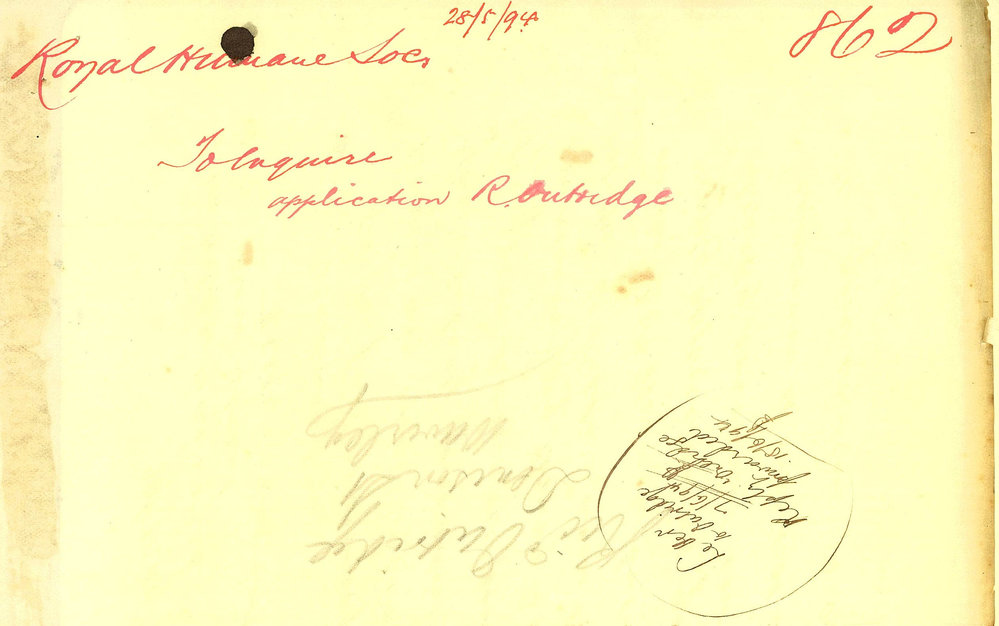 28/5/94
862
Royal Humane Soc.
To Enquire
application R. Outridge
Letter
to Outridge
7/6/94
Reply Outridge
forwarded
15/6/94
Outridge
Denison St
Waverley